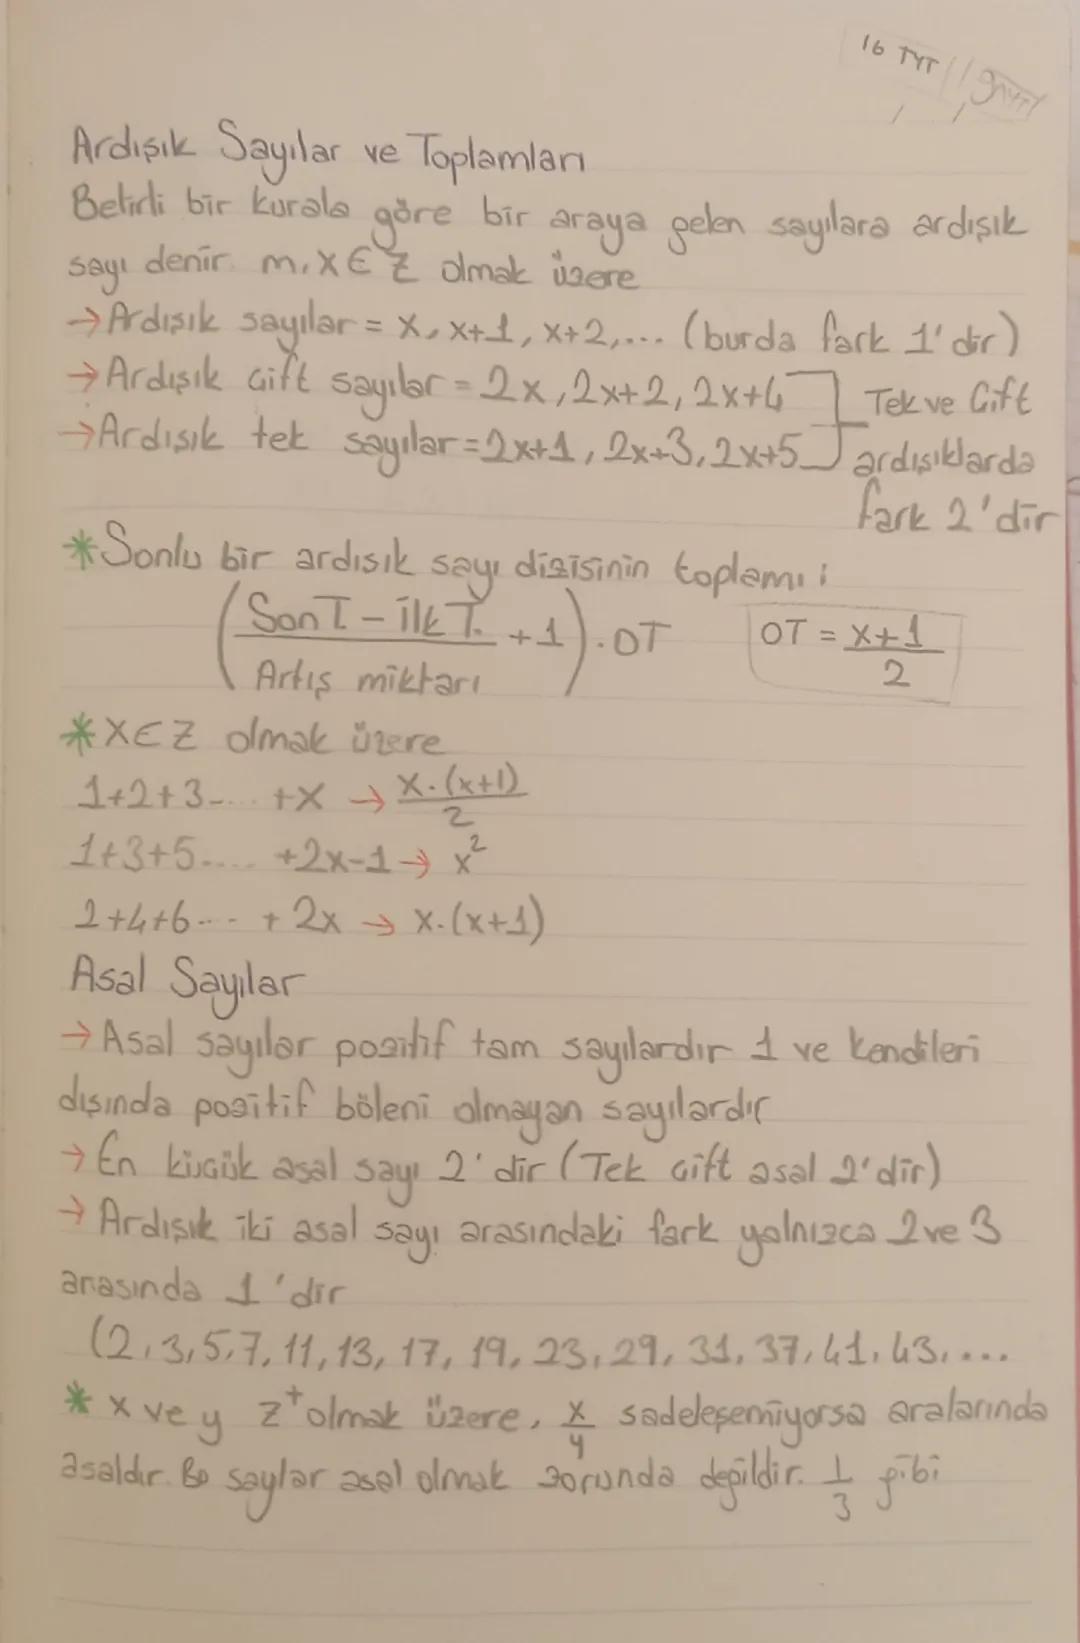 16 TYT
Ardışık Sayılar ve Toplamları
Belirli bir kurala göre bir araya gelen sayılara ardışık
sayı denir. m, x ∈ Z olmak üzere
→ Ardışık sayılar = x, x+1, x+2,... (burda fark 1'dir)
→ Ardışık çift sayılar = 2x, 2x+2, 2x+4
→ Ardışık tek sayılar = 2x+1, 2x+3, 2x+5
Tek ve Çift
ardışıklarda
fark 2'dir
* Sonlu bir ardışık sayı dizisinin toplamı:
(Son T - İlk T. / Artış miktarı + 1) . OT
OT = x+1 / 2
* x ∈ Z olmak üzere
1+2+3.... +x → x.(x+1) / 2
1+3+5.... +2x-1 → x²
2+4+6... + 2x → x.(x+1)
Asal Sayılar
→ Asal sayılar pozitif tam sayılardır 1 ve kendileri
dışında pozitif böleni olmayan sayılardır
→ En küçük asal sayı 2'dir (Tek çift asal 2'dir)
→ Ardışık iki asal sayı arasındaki fark yalnızca 2 ve 3
arasında 1'dir
(2,3,5,7,11,13,17,19,23,29,31,37,41,43,...
* x ve y Z⁺ olmak üzere, x/y sadeleşemiyorsa aralarında
asaldır. Bu sayılar asal olmak zorunda değildir. 1/3 gibi